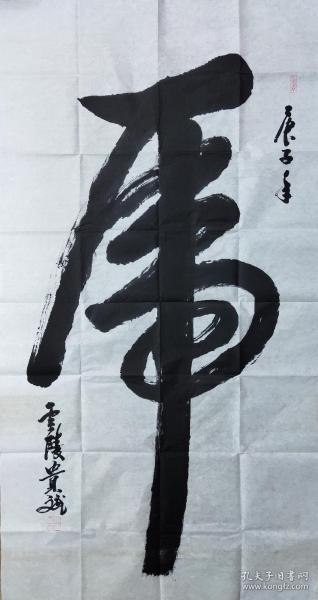 庚子年
虎
云陵贵斌
孔夫子旧书网